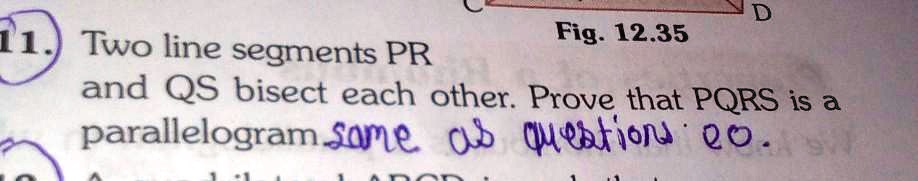 C D
Fig. 12.35
11. Two line segments PR
and QS bisect each other. Prove that PQRS is a
parallelogram. same as question